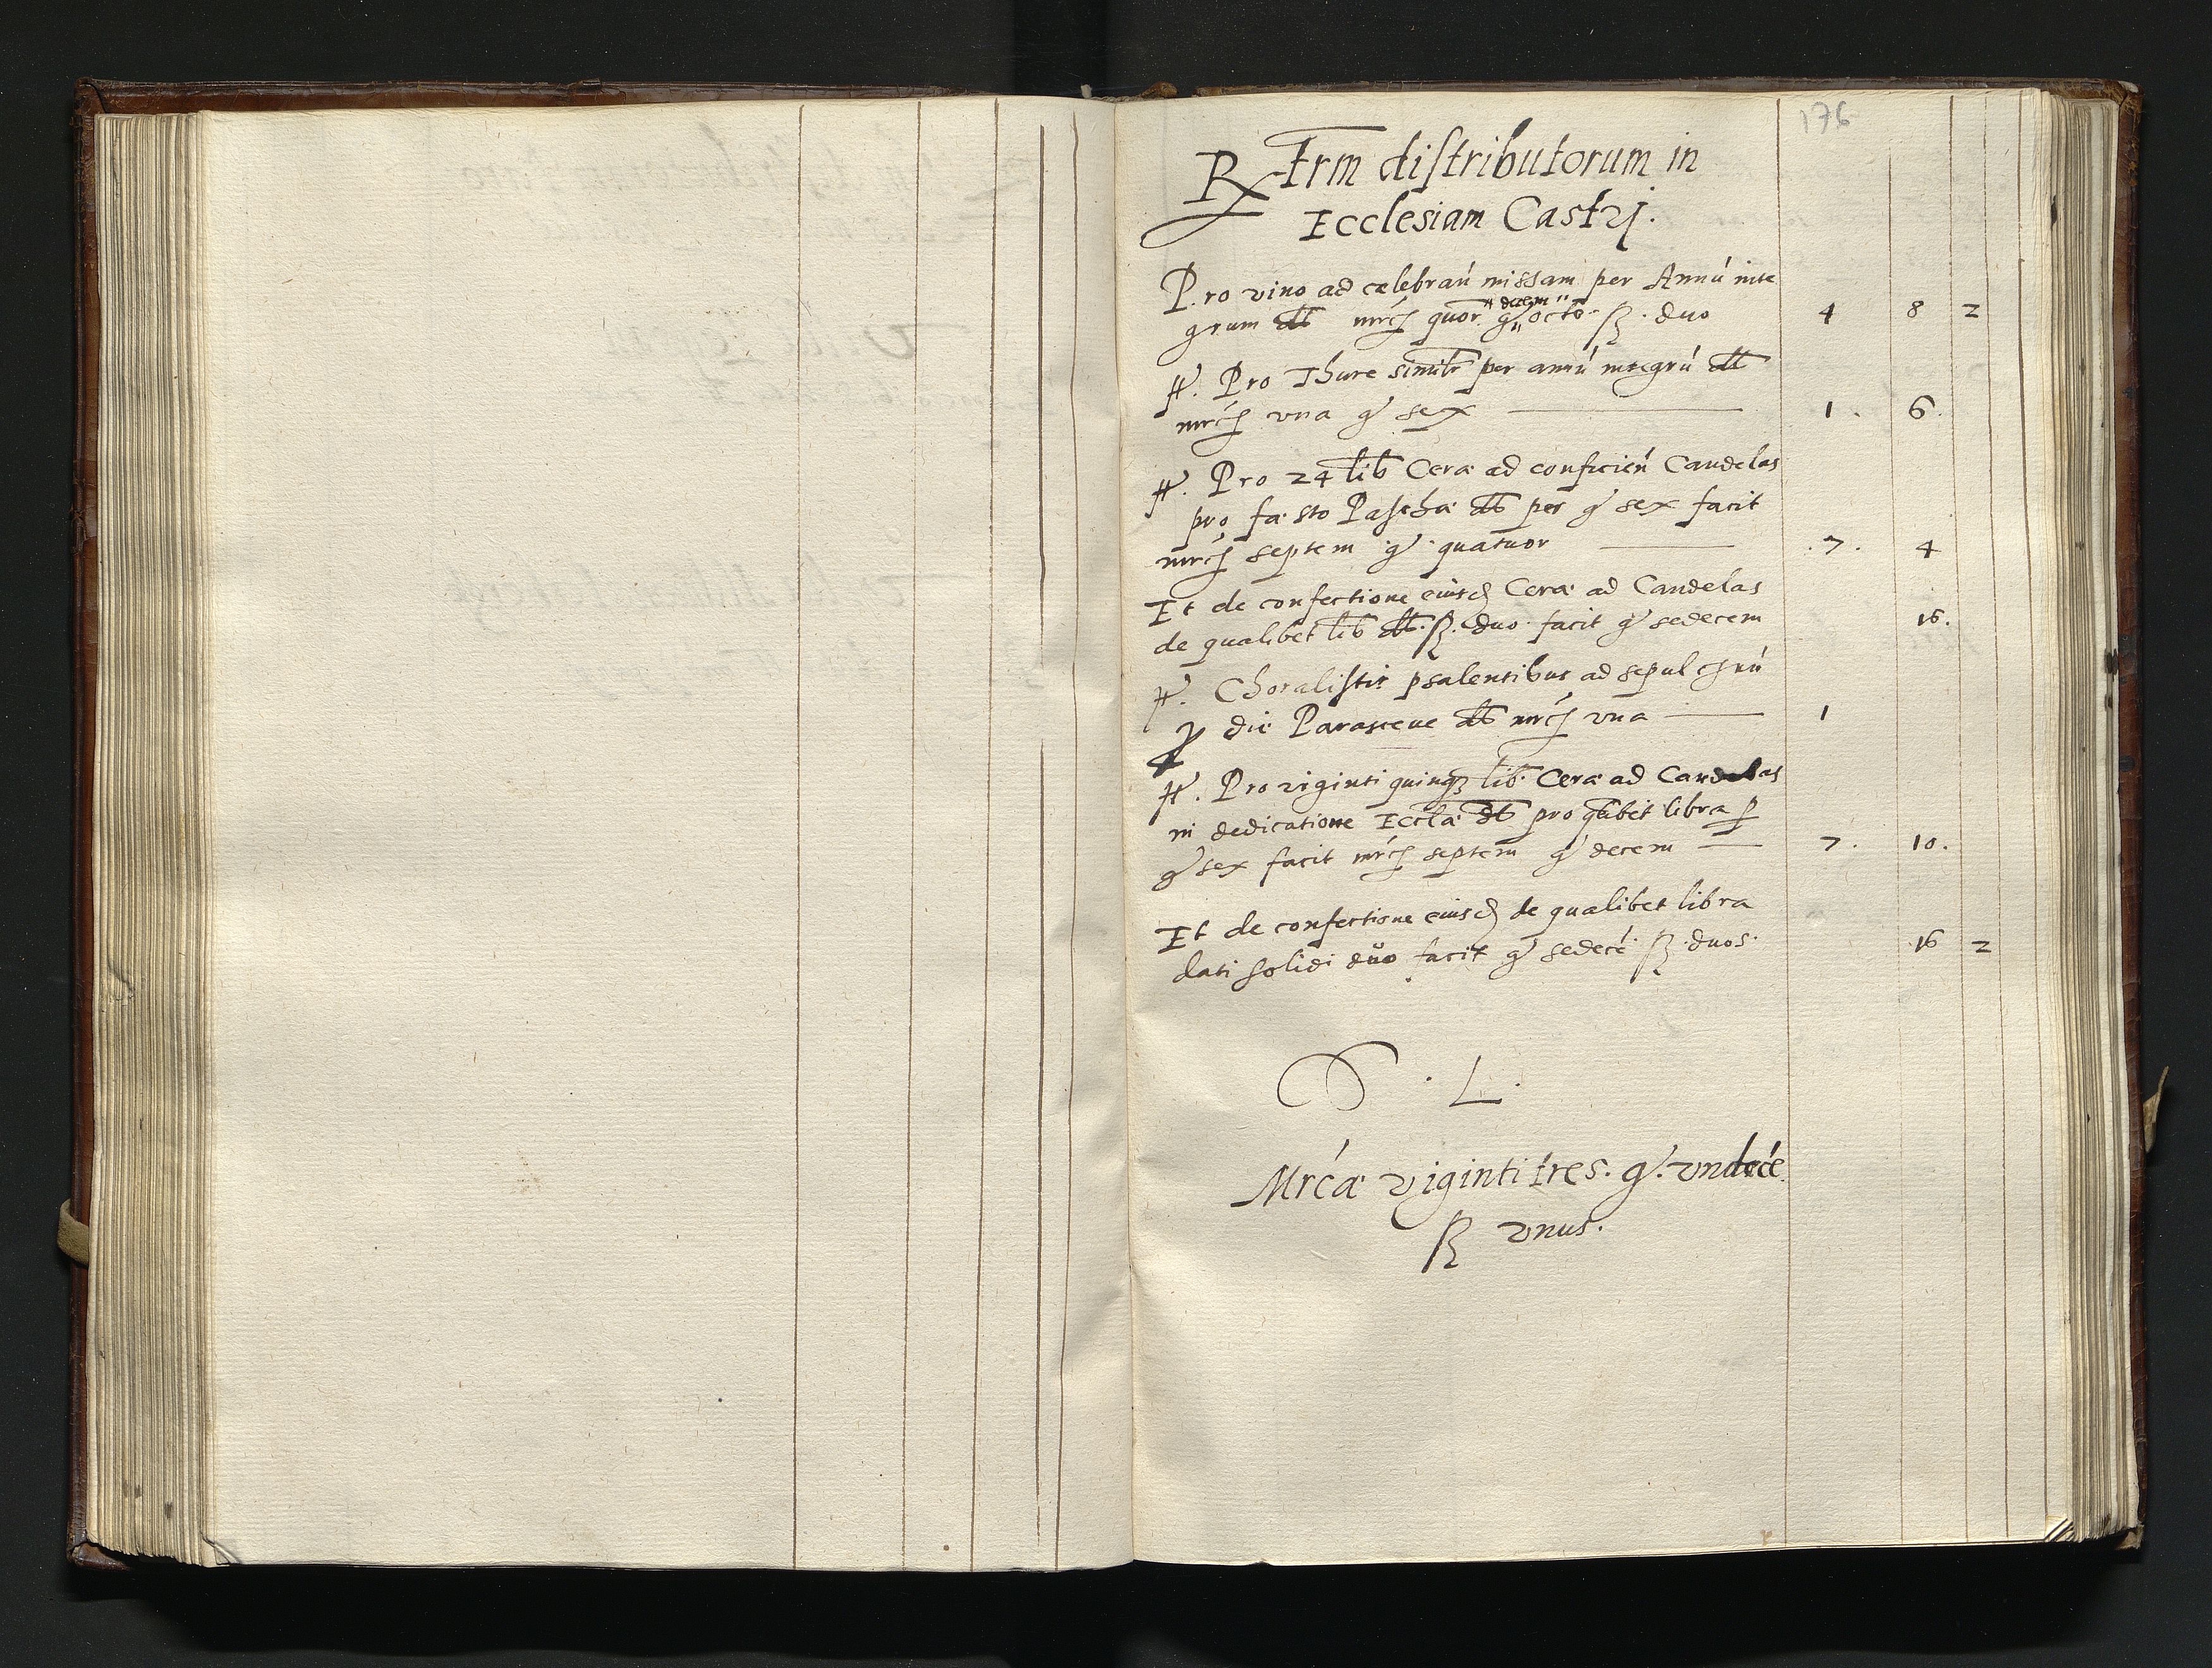 176
Rx Frm distributorum in
Ecclesiam Castrj.
Pro vino ad celebrań missam per Annú inte
grum dt mrcę quor "decem" gͬ octo ß. duo 4 8 2
It. Pro Thure similr per annú integrú dt
mrcę vna gͬ sex 1. 6.
It. Pro 24 lib Ceræ ad conficień Candelas
pro fæsto Paschæ dt per gͬ sex facit
mrcę septem gͬ quatuor .7. 4
Et de confectione eiusd Ceræ ad Candelas
de qualibet lib dt. ß. duo facit gͬ sedecem 16.
It. Choralistis psalentibus ad sepulchrú
p die Parasceue dt mrcę vna 1
It. Pro viginti quinqȝ lib. Ceræ ad Candelas
in dedicatione Eccla dt pro qlibet libra p
gͬ sex facit mrcę septem gͬ decem 7. 10.
Et de confectione eiusd de qualibet libra
dati solidi duo facit gͬ sedecé ß. duos. .16 2
L.
Mrcæ viginti tres. gͬ. vndecé
ß vnus.